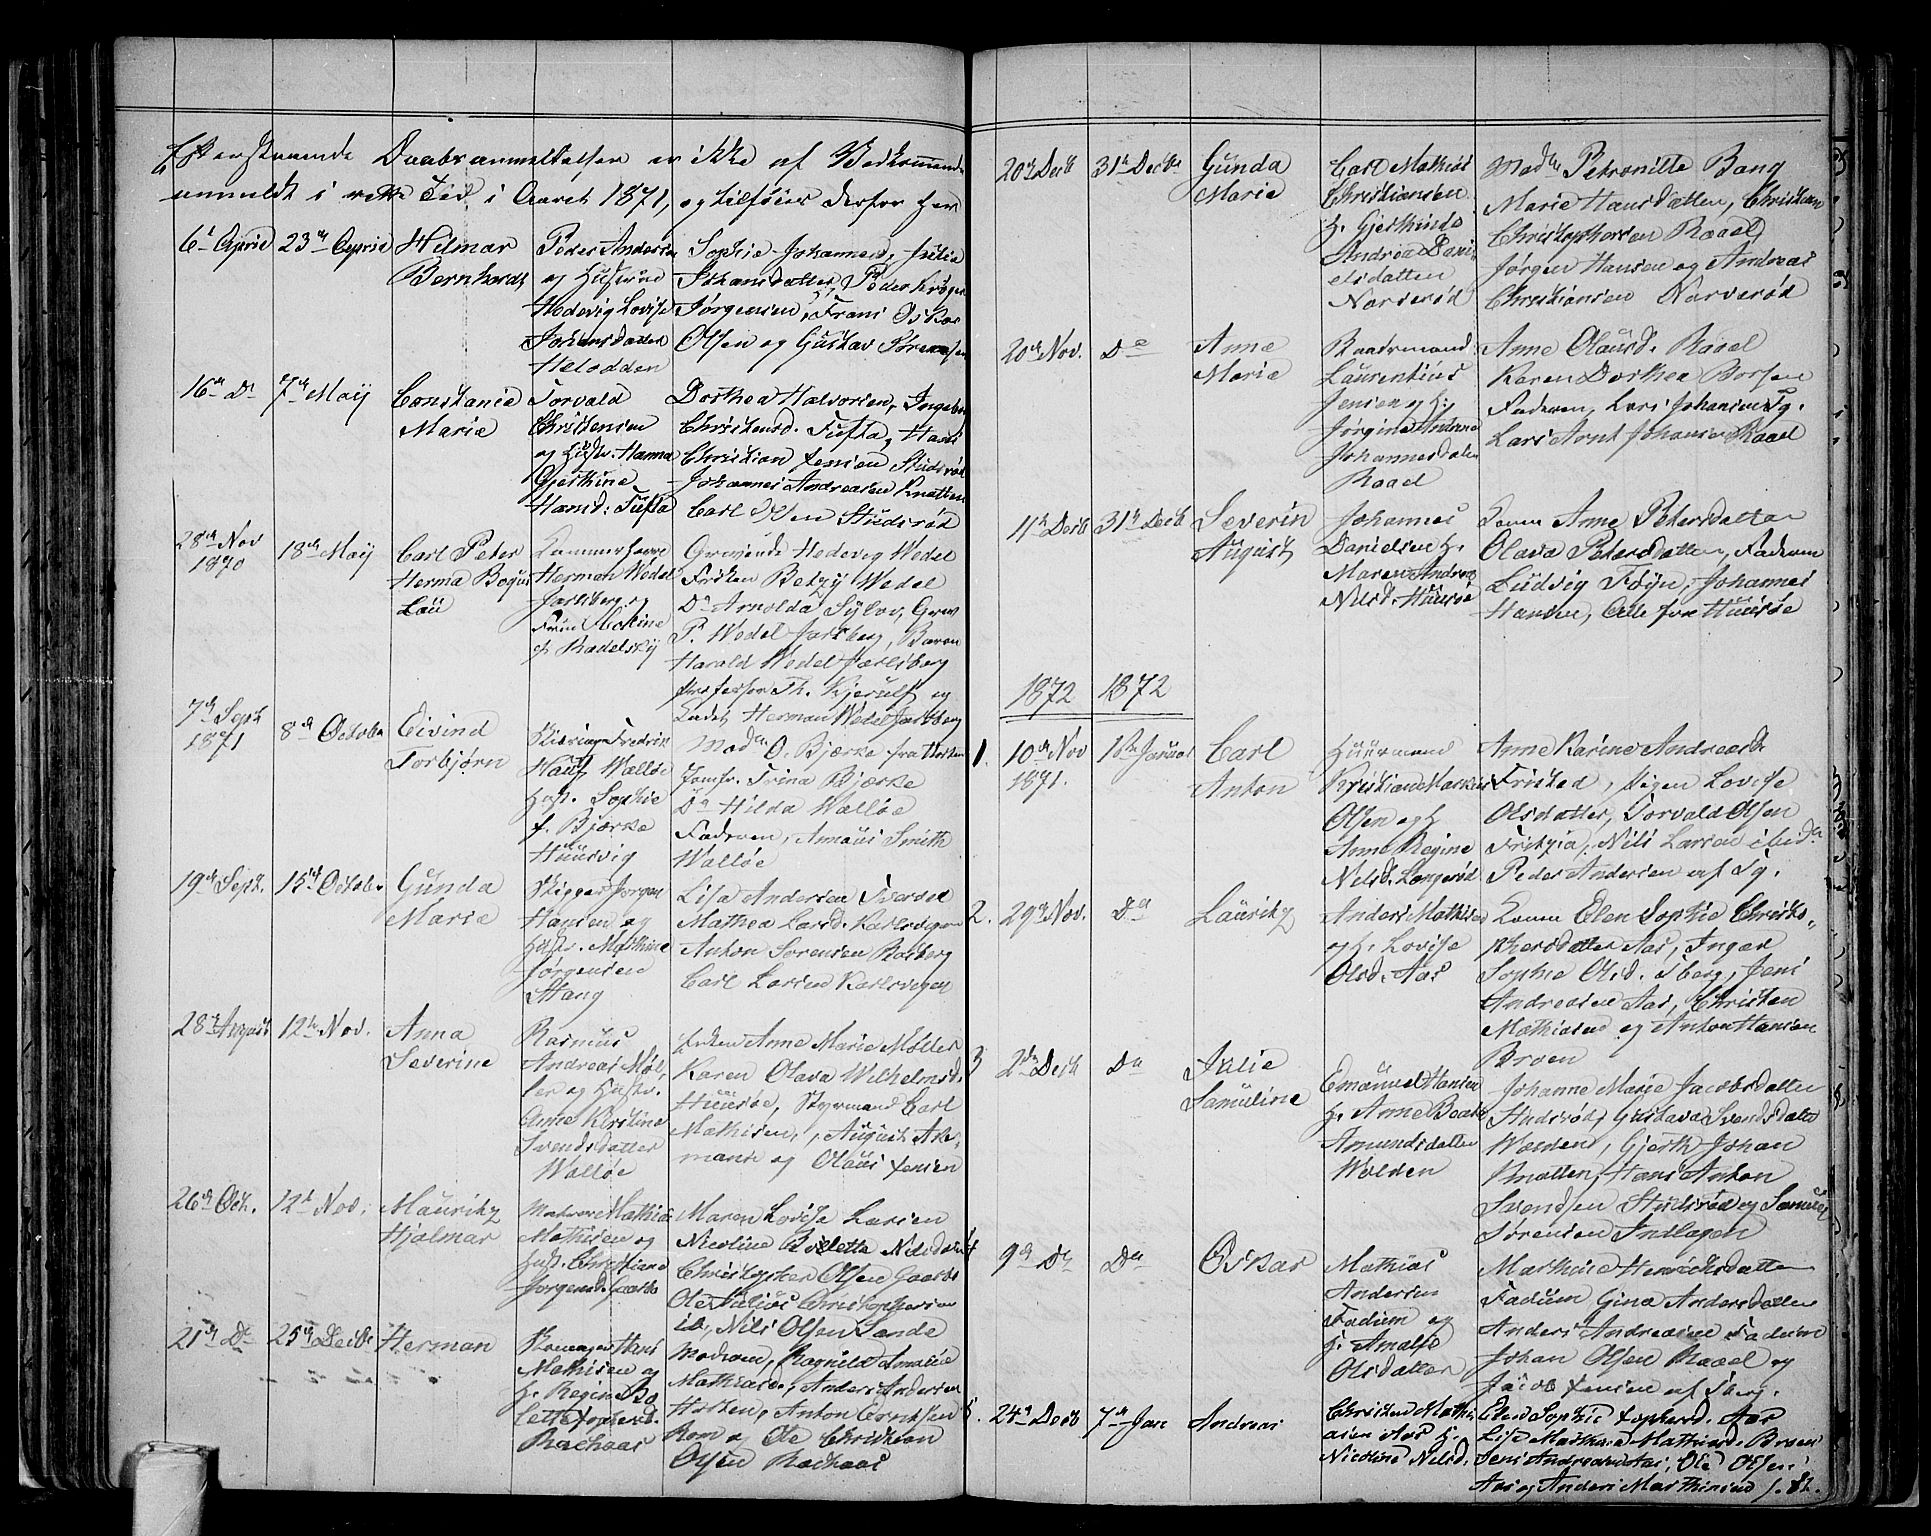 Efterstaaende Daabsanmeldelser er ikke af Vedkommende
anmeldt i rette Tid i Aaret 1871, og tilføies derfor her
6te April 23de April Hilmar Bernhardt
Peder Andersen
og Hustrue
Hedevig Lovise
Johansdatter
Helodden
Sophie Johannesd, Julie
Johansdatter, Peder Krøger
Jørgensen, Frans Oskar
Olsen og Gustav Sørensen
16de Do 7de Maij Constance Maria
Torvald
Christensen
og Hustr. Hanna
Gjerthine
Hansd: Tufta
Dorthea Halvorsen, Ingeborg
Christensd. Tufta, Hans
Christian Jensen Studsrød
Johannes Andreasen Knatten
Carl Olsen Studsrød
28de Nov 1870 18de Maij Carl Peter
Herman
Lou
Kammerherre
Herman Wedel
Jarlsberg og
Frue
f. Radelsky
Grevinde Hedevig Wedel
Frøken Betzy Wedel
Do Arnolda Sylov, Grev
P. Wedel Jarlsberg, Baron
Harald Wedel Jarlsberg
Professor Th. Kjerulf og
Cadet Herman Wedel Jarlsberg
7de Sept 1871 8de October Eivind Torbjørn
Fredrik
Walløe
Hust. Sophie
f. Bjerke
Huusvig
Madm O. Bjerke fra Horten
Jomfr. Trina Bjerke
Do Hilda Walløe
Faderen, Annaus Smith
Walløe
19de Sept. 15de October Gunda Maria
Skipper Jørgen
Hansen og
Hustr. Mathine
Jørgensen
Stang
Lisa Andersen Tveroe
Mathea Larsd. Karlsvigen
Anton Sorensen Rosberg
Carl Larsen Karlsvigen
28de August 12te Nov. Anna Severine
Rasmus
Andreas Møl-
ler og Hustr.
Anne Kirstine
Svendsdatter
Walløe
Enken Anne Marie Møller
Karen Olava Wilhelmsd.
Huusøe, Styrmand Carl
Mathisen, August Ake-
mann og Olaus Jensen
26de Oct. 12te Nov. Mauritz Hjalmar
Matros Mathis
Mathisen og
Hust. Christiane
Jørgensd.
Maren Lovise Larsen
Nicoline Bolette Nilsdatter
Christopher Olsen
Ole Julius Christophersen
ib., Nils Olsen Sande
21de Do 25de Decbr Herman
Skomager Hans
Mathisen og
H. Regine Bo
lette Tophersd.
Rachaas
Modren, Ragnild Amalie
Mathiasd., Anders Andersen
Horten, Anton Ericksen
Rom og Ole Christian
Olsen Rachaas
20de Decb 31te Decbr Gunda Marie
Carl Mathias
Christiansen
H. Gjerthine
Andrea Dani-
elsdatter
Narverød
Madm Petronille Bang
Marie Hansdatter, Christian
Christophersen Raael
Jørgen Hansen og Andreas
Christiansen Narverød
20de Nov. Do Anne Marie
Baadsmand
Laurentius
Jensen og H.
Jørgine Andrine
Johannesdatter
Raael
Anne Olausd. Raael
Karen Dorthea Borsen
Faderen, Lars Johansen Tg.
Lars Arnt Johansen Raael
11te Decb 31te Decb Severin August
Johannes
Danielsen H.
Maren Andrea
Nilsd. Huusøe
Konen Anne Petersdatter
Olava Petersdatter, Faderen
Ludvig Føyn, Johannes
Hansen, Alle fra Huusøe
1872 1872
1. 10de Nov 1871. 1ste Januar Carl Anton
Huusmand
Kristian Markus
Olsen og H
Anne Regine
Nilsd. Langerød
Anne Karine Andreasd.
Fristad, Pigen Lovise
Olsdatter, Torvald Olsen
Nils Larsen ibid.
Peder Andersen af Tg.
2. 29de Nov. Do Lauritz
Anders Mathisen
og H. Lovise
Olsd. Aas
Konen Elen Sophie Christo-
phersdatter Aas, Inger
Sophie Olsd. Tberg, Jens
Andreasen Aas, Christen
Mathisen og Anton Hansen
Broen
3 2den Decb Do Julie Samuline
Emanuel Hansen
H. Anne Beate
Amundsdatter
Wolden
Johanne Marie Jacobsdatter
Studsrød, Gustava Svendsdatter
Wolden, Gjerth Johan
Knatten, Hans Anton
Svendsen Studsrød og Samuel
Sørensen Indlagen
4 9de Do Do Oskar
Mathias
Andersen
Fadum og
H. Amalie
Olsdatter
Mathine Henriksdatter
Fadum Gina Andersdatter
Anders Andreasen Fadum
Johan Olsen Raael og
Jacob Jensen af Tberg.
5. 24de Decb 7de Jan Andreas
Christen Mathi-
asen Aas H.
Nicoline Nilsd.
Elen Sophie Tophersd. Aas
Lise Mathea Mathiasd. Broen
Jens Andreasen Aas, Ole Olsen
Aas og Anders Marthinsen